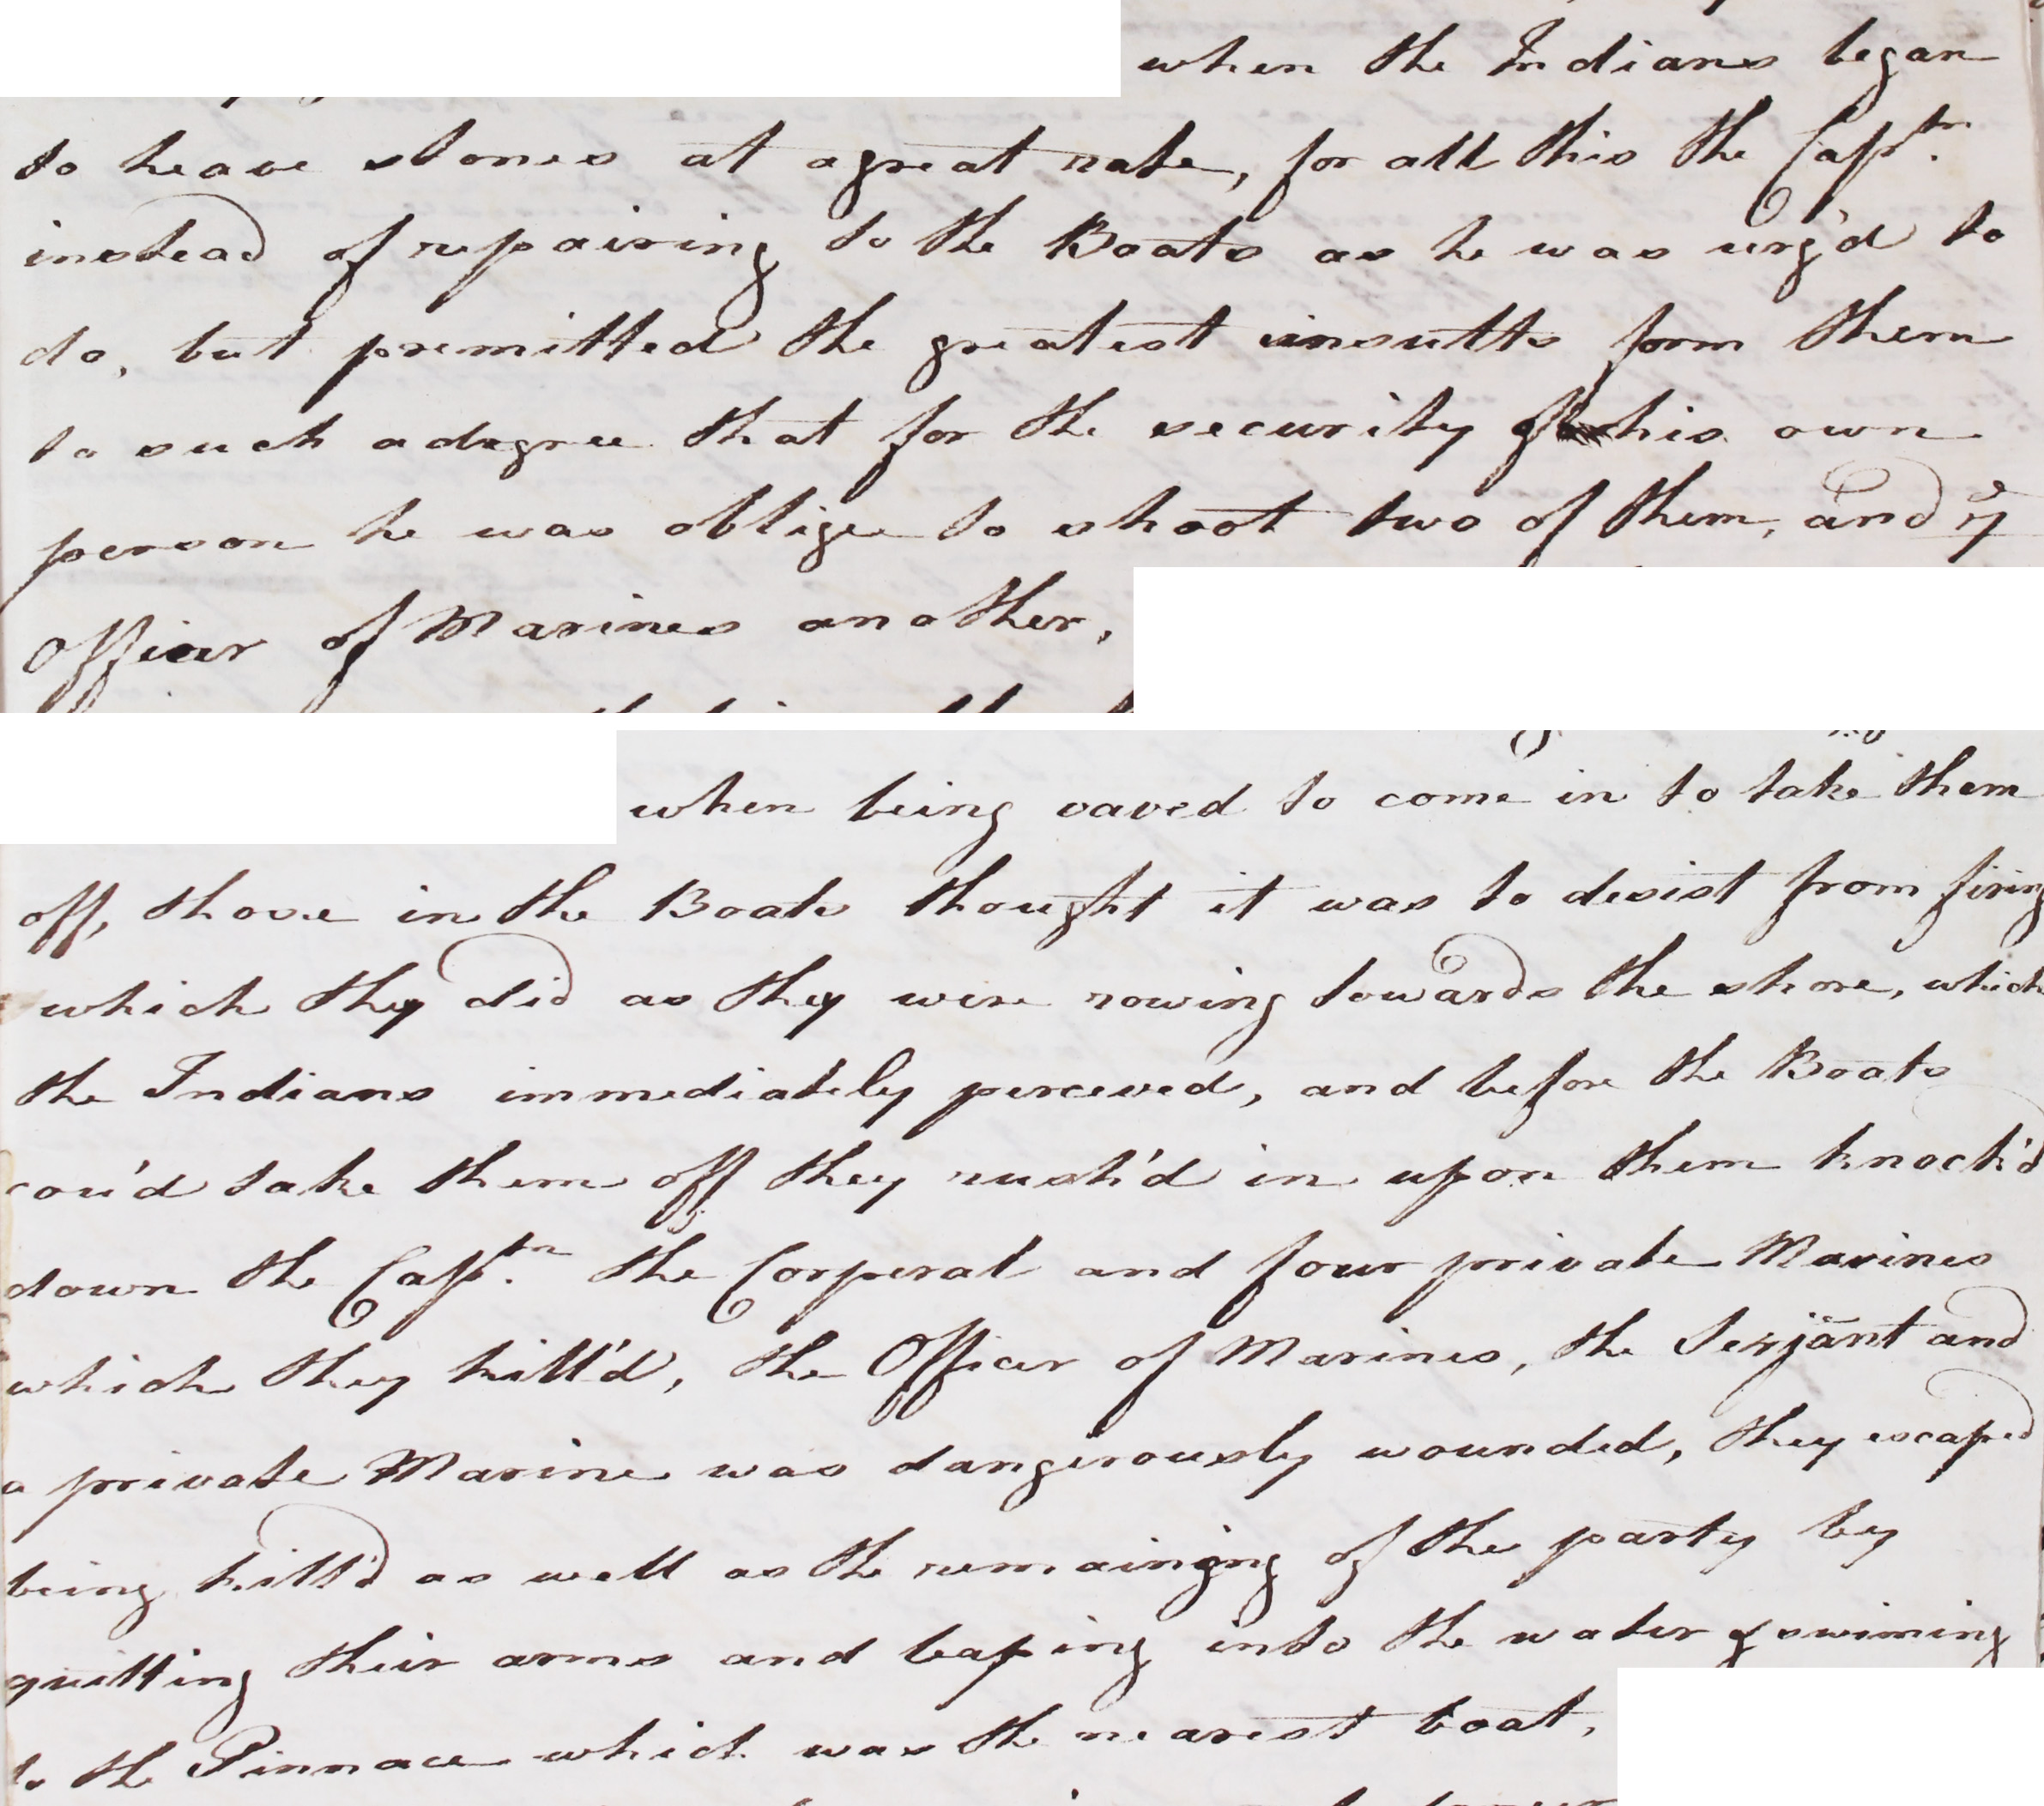 when the Indians began
to heave stones at a great rate, for all this the Captn.
instead of repairing to the Boats as he was urg'd to
do, but premitted the greatest insults form them
to such a degree that for the security of his own
person he was oblige to shoot two of them, and ye
Officer of Marines another,
when being vaved to come in to take them
off, those in the Boats thought it was to desist from firing
which they did as they were rowing towards the shore, which
the Indians immediately perceved, and before the Boats
cou'd take them off they rush'd in upon them knock'd
down the Captn. the Corperal and four private Marines
which they kill'd, the Officer of Marines, the Serjant and
a private Marine was dangerously wounded, they escaped
being kill'd as well as the remainging of the party by
quitting their arms and leaping into the water & swiming
to the Pinnace which was the nearest boat,